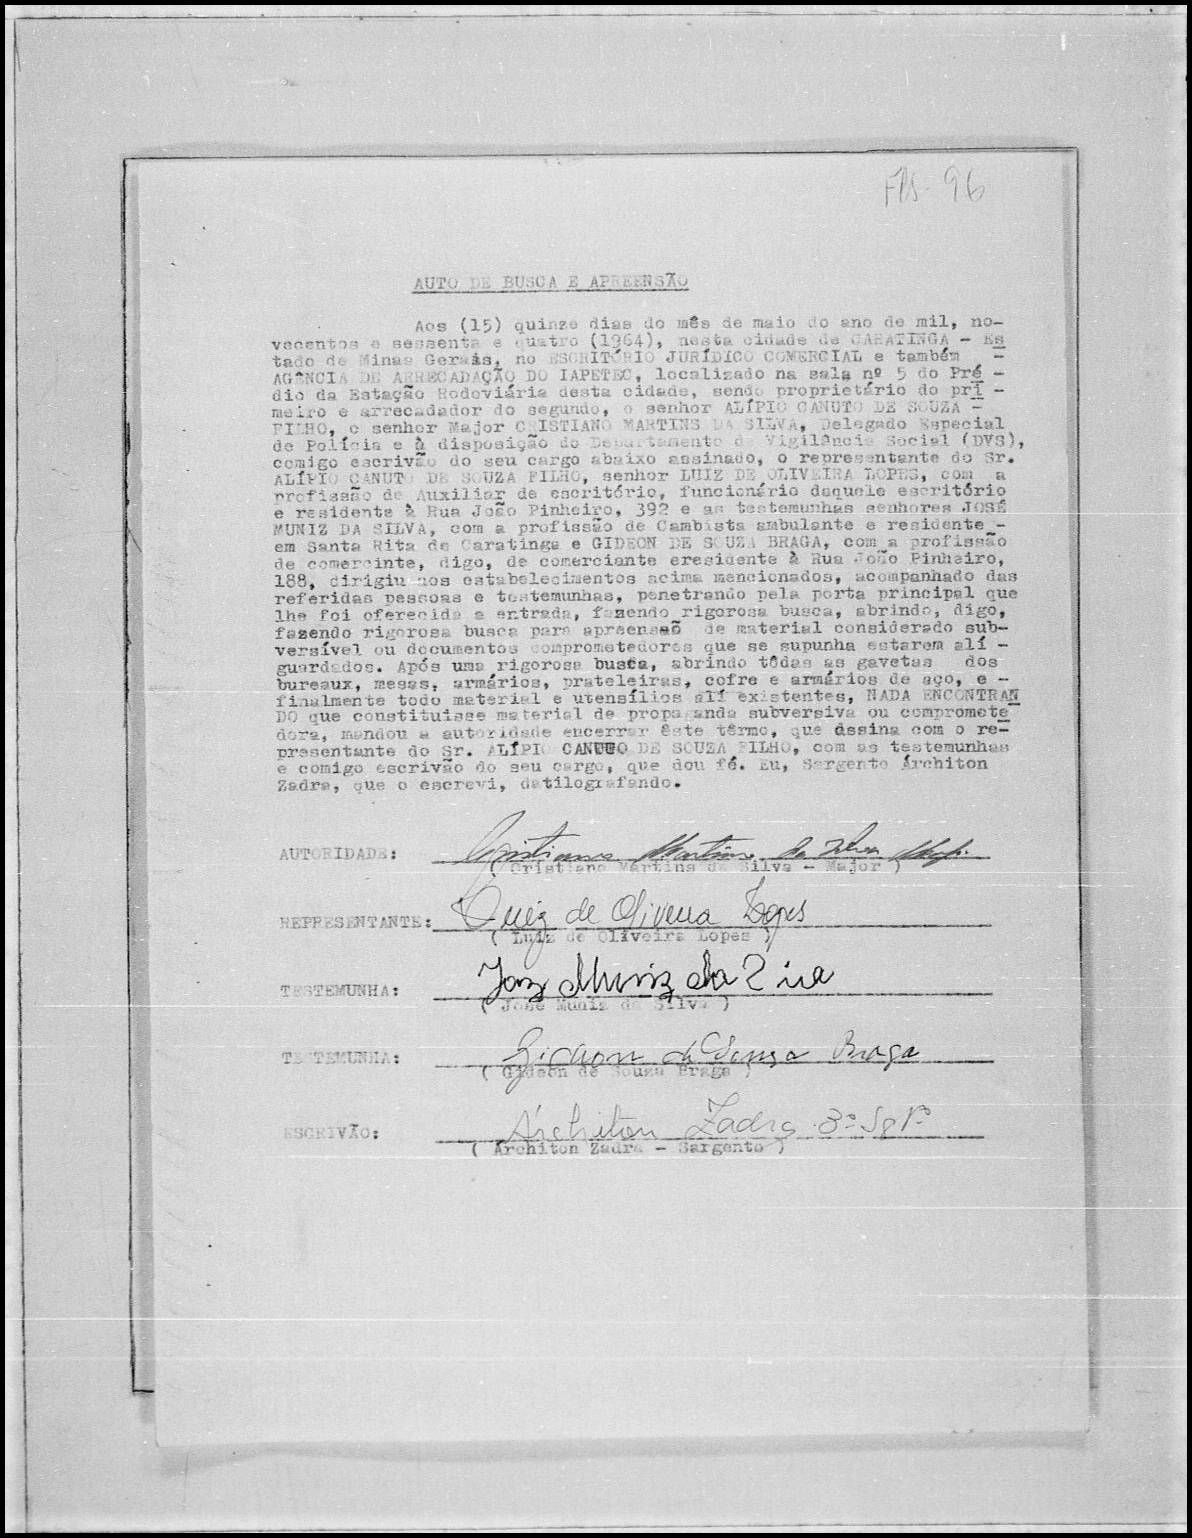 Fls. 96
AUTO DE BUSCA E APREENSÃO
Aos (15) quinze dias do mês de maio do ano de mil, no-
vecentos e sessenta e quatro (1964), nesta cidade de CARATINGA - Es
tado de Minas Gerais, no ESCRITÓRIO JURÍDICO COMERCIAL e também -
AGÊNCIA DE ARRECADAÇÃO DO IAPETEC, localizado na sala nº 5 do Pré -
dio da Estação Rodoviária desta cidade, sendo proprietário do pri -
meiro e arrecadador do segundo, o senhor ALÍPIO CANUTO DE SOUZA -
FILHO, o senhor Major CRISTIANO MARTINS DA SILVA, Delegado Especial
de Polícia e à disposição do Departamento de Vigilância Social (DVS),
comigo escrivão do seu cargo abaixo assinado, o representante do Sr.
ALÍPIO CANUTO DE SOUZA FILHO, senhor LUIZ DE OLIVEIRA LOPES, com a
profissão de Auxiliar de escritório, funcionário daquele escritório
e residente à Rua João Pinheiro, 392 e as testemunhas senhores JOSÉ
MUNIZ DA SILVA, com a profissão de Cambista ambulante e residente -
em Santa Rita de Caratinga e GIDEON DE SOUZA BRAGA, com a profissão
de comercinte, digo, de comerciante eresidente à Rua João Pinheiro,
188, dirigiu aos estabelecimentos acima mencionados, acompanhado das
referidas pessoas e testemunhas, penetrando pela porta principal que
lhe foi oferecida a entrada, fazendo rigorosa busca, abrindo, digo,
fazendo rigorosa busca para apreensaõ de material considerado sub-
versível ou documentos comprometedores que se supunha estarem alí -
guardados. Após uma rigorosa busca, abrindo tôdas as gavetas dos
bureaux, mesas, armários, prateleiras, cofre e armários de aço, e -
finalmente todo material e utensílios alí existentes, NADA ENCONTRAN
DO que constituisse material de propaganda subversiva ou compromete
dora, mandou a autoridade encerrar êste têrmo, que assina com o re-
presentante do Sr. ALÍPIO CANUTO DE SOUZA FILHO, com as testemunhas
e comigo escrivão do seu cargo, que dou fé. Eu, Sargento Árchiton
Zadra, que o escrevi, datilografando.
AUTORIDADE: Cristiano Martins da Silva Maj.
( Cristiano Martins da Silva - Major )
REPRESENTANTE: Luiz de Oliveira Lopes
( Luiz de Oliveira Lopes )
TESTEMUNHA: José Muniz da Silva
( José Muniz da Silva )
TESTEMUNHA: Gideon de Souza Braga
( Gideon de Souza Braga )
ESCRIVÃO: Árchiton Zadra 3º Sgtº
( Árchiton Zadra - Sargento )